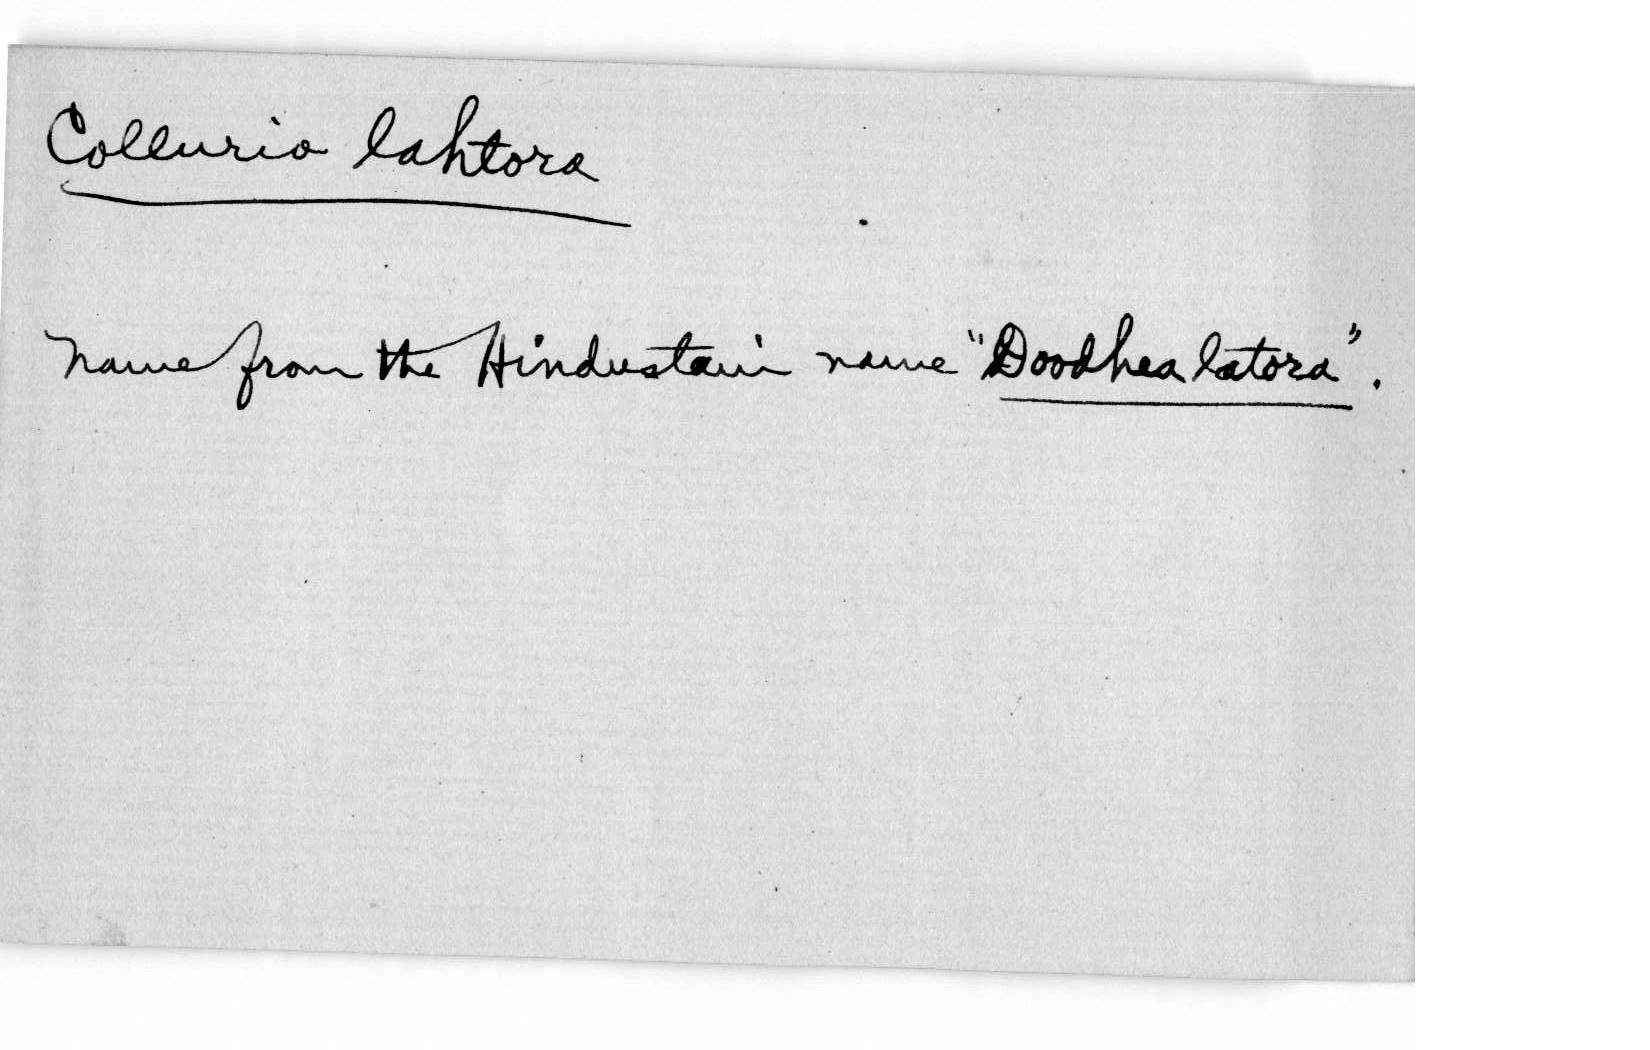 Collurio lahtora
Name from the Hindustani name "Doodhea latora".